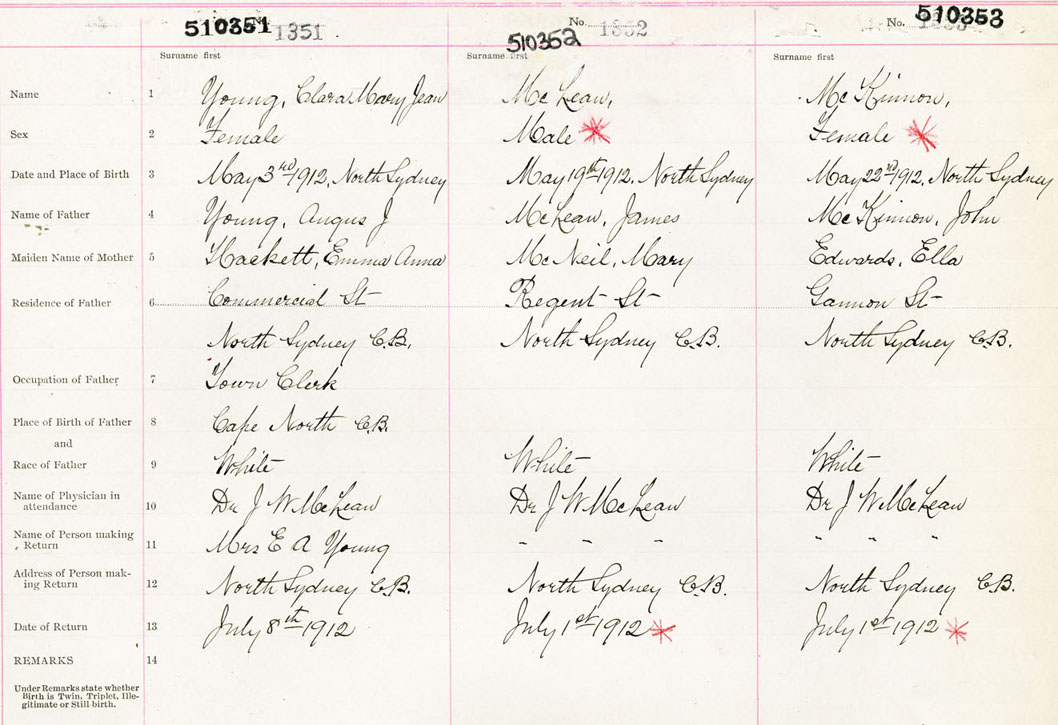 510351 1351 No. 1352 510352 No. 510353
Surname first Surname first Surname first
Name 1 Young, Clara Mary Jean McLean, McKinnon,
Sex 2 Female Male Female
Date and Place of Birth 3 May 3rd 1912, North Sydney May 19th 1912, North Sydney May 22nd 1912, North Sydney
Name of Father 4 Young, Angus J McLean, James McKinnon, John
Maiden Name of Mother 5 Hackett, Emma Anna McNeil, Mary Edwards, Ella
Residence of Father 6 Commercial St Regent St Gannon St
North Sydney C.B. North Sydney C.B. North Sydney C.B.
Occupation of Father 7 Town Clerk
Place of Birth of Father 8 Cape North C.B.
and
Race of Father 9 White White White
Name of Physician in
attendance 10 Dr J W McLean Dr J W McLean Dr J W McLean
Name of Person making
Return 11 Mrs E A Young " " " " " "
Address of Person mak-
ing Return 12 North Sydney C.B. North Sydney C.B. North Sydney C.B.
Date of Return 13 July 8th 1912 July 1st 1912 July 1st 1912
REMARKS 14
Under Remarks state whether
Birth is Twin, Triplet, Ille-
gitimate or Still-birth.